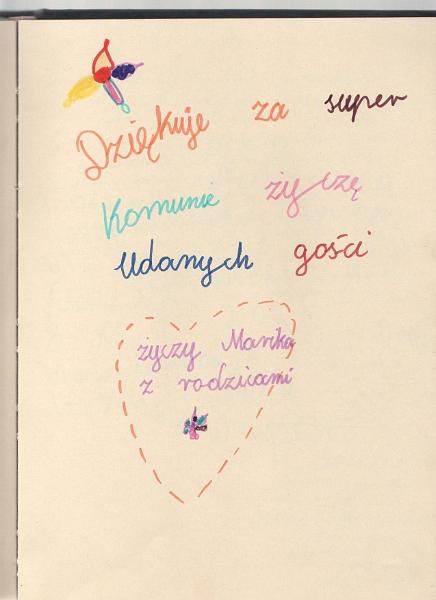 Dziękuje za super
Komunie życzę
Udanych gości
życzy Marika
z rodzicami